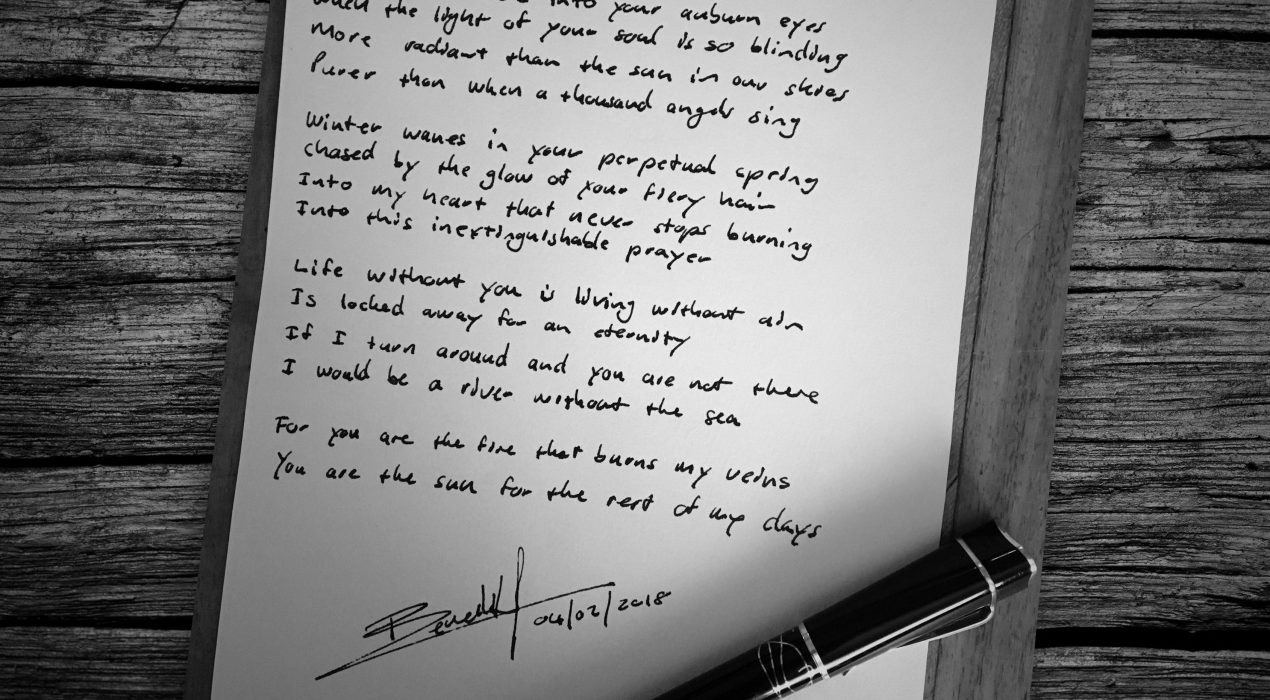 into your auburn eyes
when the light of your soul is so blinding
More radiant than the sun in our skies
Purer than when a thousand angels sing
Winter wanes in your perpetual spring
chased by the glow of your fiery hair
Into my heart that never stops burning
Into this inextinguishable prayer
Life without you is living without aim
Is locked away for an eternity
If I turn around and you are not there
I would be a river without the sea
For you are the fire that burns my veins
You are the sun for the rest of my days
04/02/2018